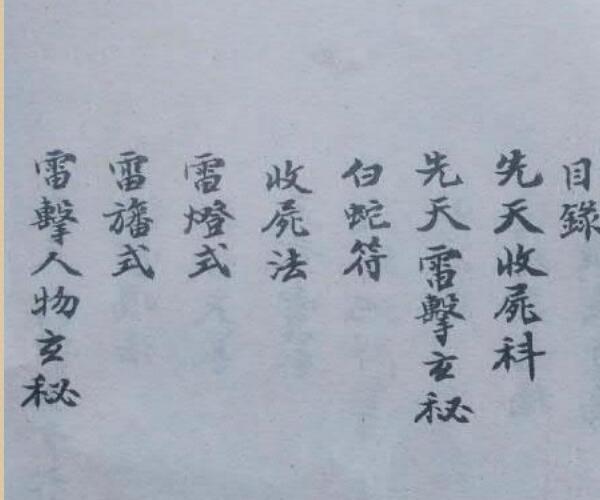 目錄
先天收屍科
先天雷擊玄秘
白蛇符
收屍法
雷燈式
雷旛式
雷擊人物玄秘